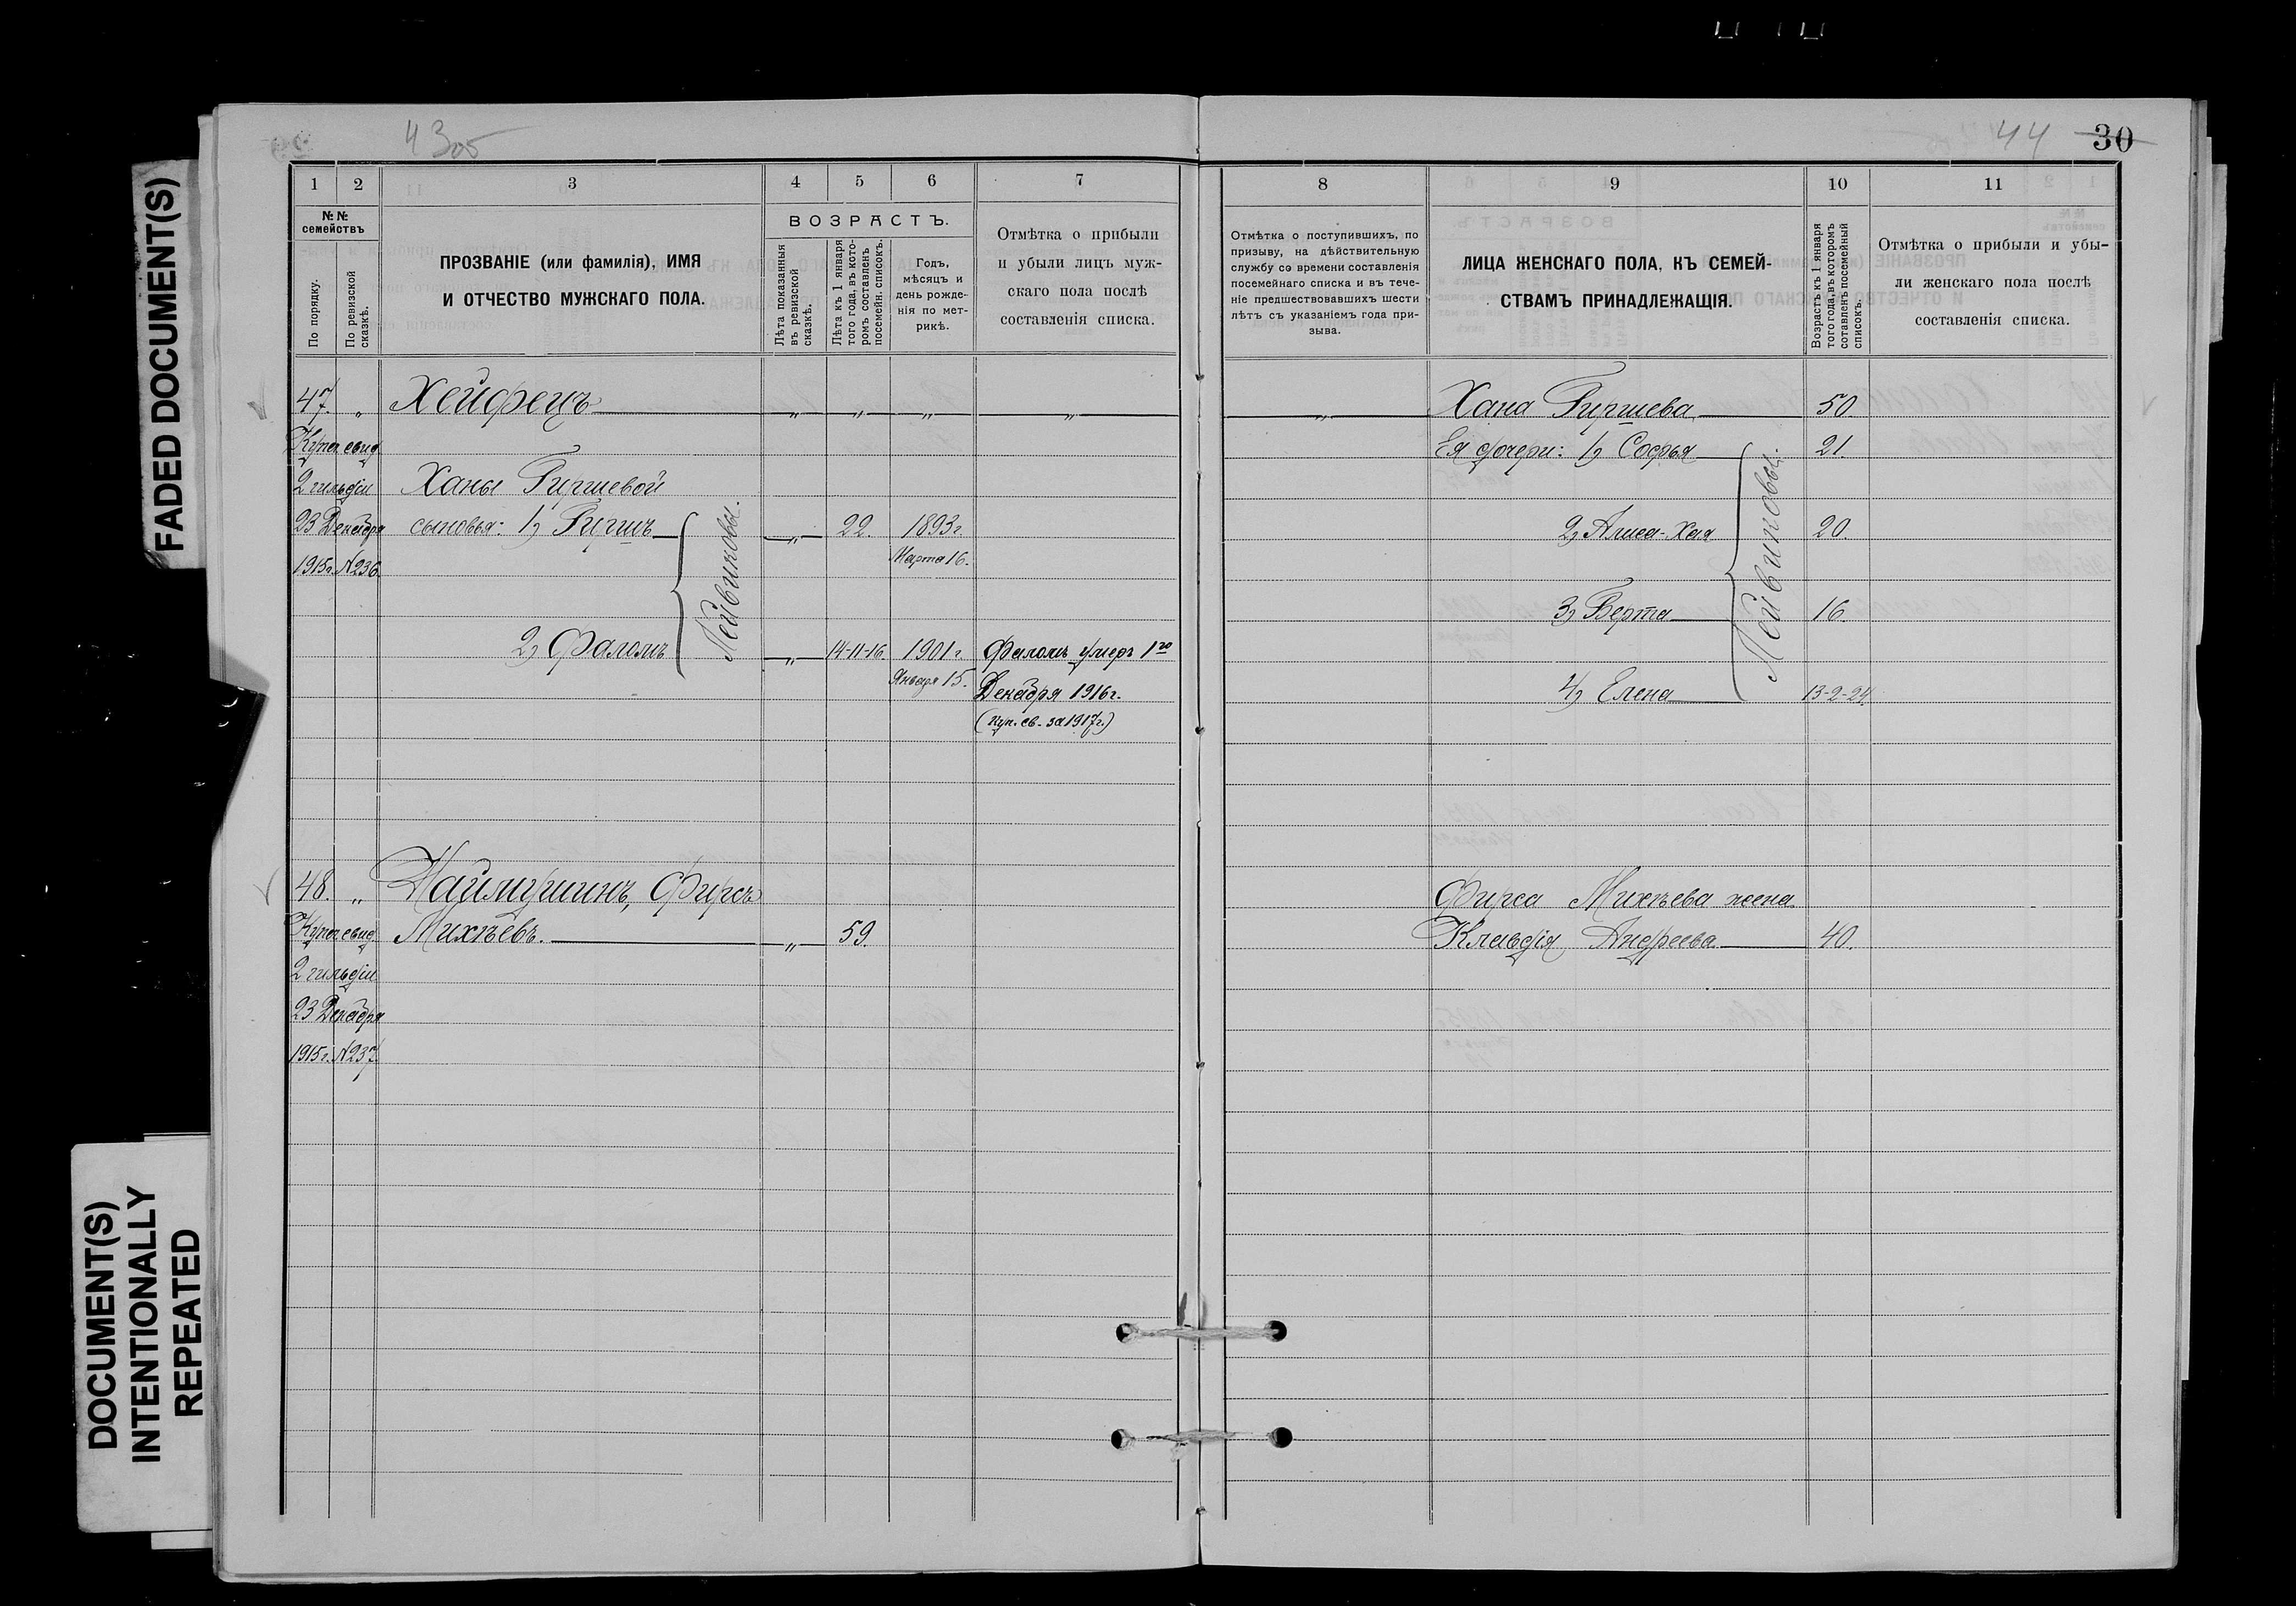 FADED DOCUMENT(S)
DOCUMENT(S)
INTENTIONALLY
REPEATED
44 30
1 2 3 4 5 6 7
№№
семействъ
По порядку.
По ревизской
сказкѣ.
ПРОЗВАНІЕ (или фамилія), ИМЯ
И ОТЧЕСТВО МУЖСКАГО ПОЛА.
ВОЗРАСТЪ.
Лѣта показанныя
въ ревизской
сказкѣ.
Лѣта къ 1 января
того года, въ кото-
ромъ составленъ
посемейн. списокъ.
Годъ,
мѣсяцъ и
день рожде-
нія по мет-
рикѣ.
Отмѣтка о прибыли
и убыли лицъ муж-
скаго пола послѣ
составленія списка.
47. " Хейфецъ " " " "
Купеч свид
2 гильдіи Ханы Гиршевой
23 Декабря сыновья: 1) Гиршъ " 22. 1893 г.
1915 г. №236. Марта 16.
Лейвиковы.
2) Фаломъ " 14-11-16 1901 г. Фаломъ умеръ 1го
Января 15. Декабря 1916 г.
(куп. св. за 1917 г.)
48. " Наймушинъ, Фирсъ
Купеч свид Михѣевъ. " 59.
2 гильдіи
23 Декабря
1915 г. №237.
8 9 10 11
Отмѣтка о поступившихъ, по
призыву, на дѣйствительную
службу со времени составленія
посемейнаго списка и въ тече-
ніе предшествовавшихъ шести
лѣтъ съ указаніемъ года при-
зыва.
ЛИЦА ЖЕНСКАГО ПОЛА, КЪ СЕМЕЙ-
СТВАМЪ ПРИНАДЛЕЖАЩІЯ.
Возрастъ къ 1 января
того года, въ которомъ
составленъ посемейный
списокъ.
Отмѣтка о прибыли и убы-
ли женскаго пола послѣ
составленія списка.
" Хана Гиршева 50.
Ея дочери: 1) Софья 21.
2) Алиса-Хая 20.
3) Берта 16.
4) Елена 13-2-24.
Лейвиковы.
Фирса Михѣева жена
Клавдія Андреева 40.